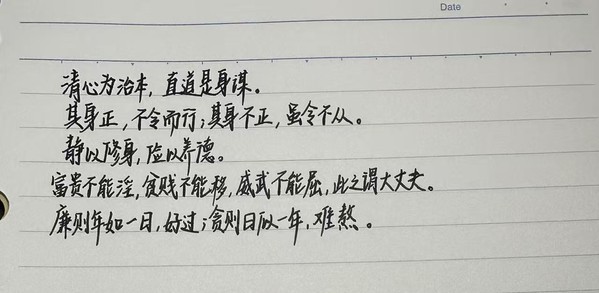 Date
清心为治本，直道是身谋。
其身正，不令而行；其身不正，虽令不从。
静以修身，俭以养德。
富贵不能淫，贫贱不能移，威武不能屈，此之谓大丈夫。
廉则年如一日，好过；贪则日似一年，难熬。